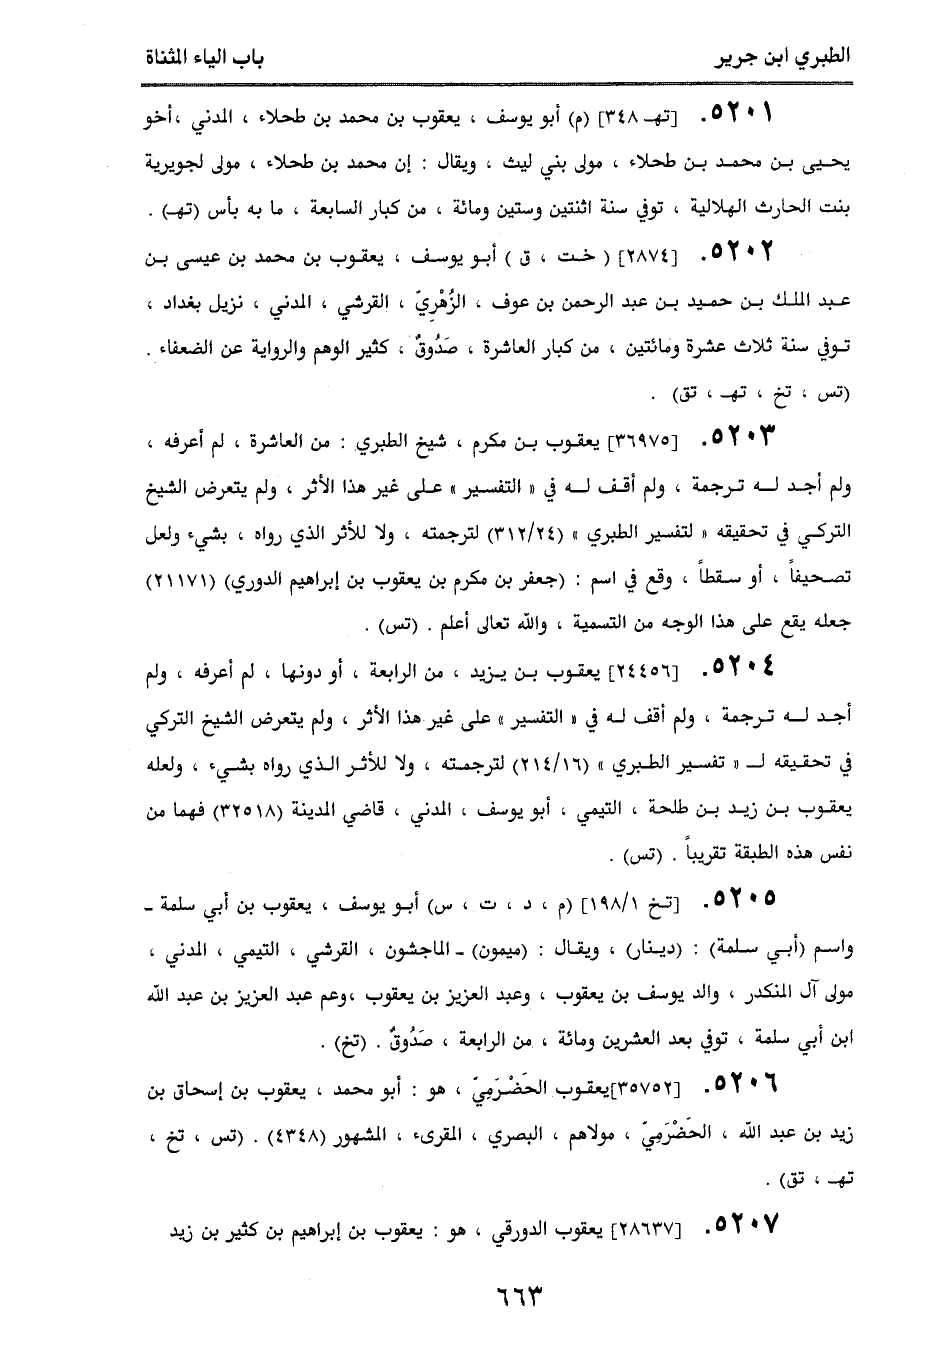 الطبري ابن جرير باب الياء المثناة
٥٢٠١. [تهـ ٣٤٨] (م) أبو يوسف ، يعقوب بن محمد بن طحلاء ، المدني ،أخو
يحيى بن محمد بن طحلاء ، مولى بني ليث ، ويقال : إن محمد بن طحلاء ، مولى لجويرية
بنت الحارث الهلالية ، توفي سنة اثنتين وستين ومائة ، من كبار السابعة ، ما به بأس (تهـ) .
٥٢٠٢. [٢٨٧٤] ( خت ، ق ) أبو يوسف ، يعقوب بن محمد بن عيسى بن
عبد الملك بن حميد بن عبد الرحمن بن عوف ، الزُهْرِيّ ، القرشي ، المدني ، نزيل بغداد ،
توفي سنة ثلاث عشرة ومائتين ، من كبار العاشرة ، صَدُوقٌ ، كثير الوهم والرواية عن الضعفاء .
(تس ، تخ ، تهـ ، تق) .
٥٢٠٣. [٣٦٩٧٥] يعقوب بن مكرم ، شيخ الطبري : من العاشرة ، لم أعرفه ،
ولم أجد له ترجمة ، ولم أقف له في « التفسير » على غير هذا الأثر ، ولم يتعرض الشيخ
التركي في تحقيقه « لتفسير الطبري » (٣١٢/٢٤) لترجمته ، ولا للأثر الذي رواه ، بشيء ولعل
تصحيفاً ، أو سقطاً ، وقع في اسم : (جعفر بن مكرم بن يعقوب بن إبراهيم الدوري) (٢١١٧١)
جعله يقع على هذا الوجه من التسمية ، والله تعالى أعلم . (تس) .
٥٢٠٤. [٢٤٤٥٦] يعقوب بن يزيد ، من الرابعة ، أو دونها ، لم أعرفه ، ولم
أجد له ترجمة ، ولم أقف له في « التفسير » على غير هذا الأثر ، ولم يتعرض الشيخ التركي
في تحقيقه لـ « تفسير الطبري » (٢١٤/١٦) لترجمته ، ولا للأثر الذي رواه بشيء ، ولعله
يعقوب بن زيد بن طلحة ، التيمي ، أبو يوسف ، المدني ، قاضي المدينة (٣٢٥١٨) فهما من
نفس هذه الطبقة تقريباً . (تس) .
٥٢٠٥. [تخ ١٩٨/١] (م ، د ، ت ، س) أبو يوسف ، يعقوب بن أبي سلمة ـ
واسم (أبي سلمة) : (دينار) ، ويقال : (ميمون) ـ الماجشون ، القرشي ، التيمي ، المدني ،
مولى آل المنكدر ، والد يوسف بن يعقوب ، وعبد العزيز بن يعقوب ،وعم عبد العزيز بن عبد الله
ابن أبي سلمة ، توفي بعد العشرين ومائة ، من الرابعة ، صَدُوقٌ . (تخ) .
٥٢٠٦. [٣٥٧٥٢]يعقوب الحَضْرَمِيّ ، هو : أبو محمد ، يعقوب بن إسحاق بن
زيد بن عبد الله ، الحَضْرَمِيّ ، مولاهم ، البصري ، المقرىء ، المشهور (٤٣٤٨) . (تس ، تخ ،
تهـ ، تق) .
٥٢٠٧. [٢٨٦٣٧] يعقوب الدورقي ، هو : يعقوب بن إبراهيم بن كثير بن زيد
٦٦٣